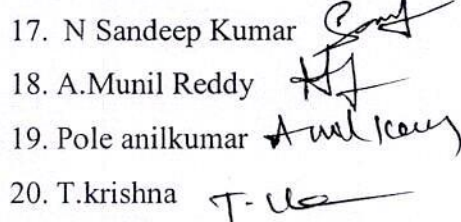 17. N Sandeep Kumar
18. A.Munil Reddy
19. Pole anilkumar Anil
20. T.krishna T.